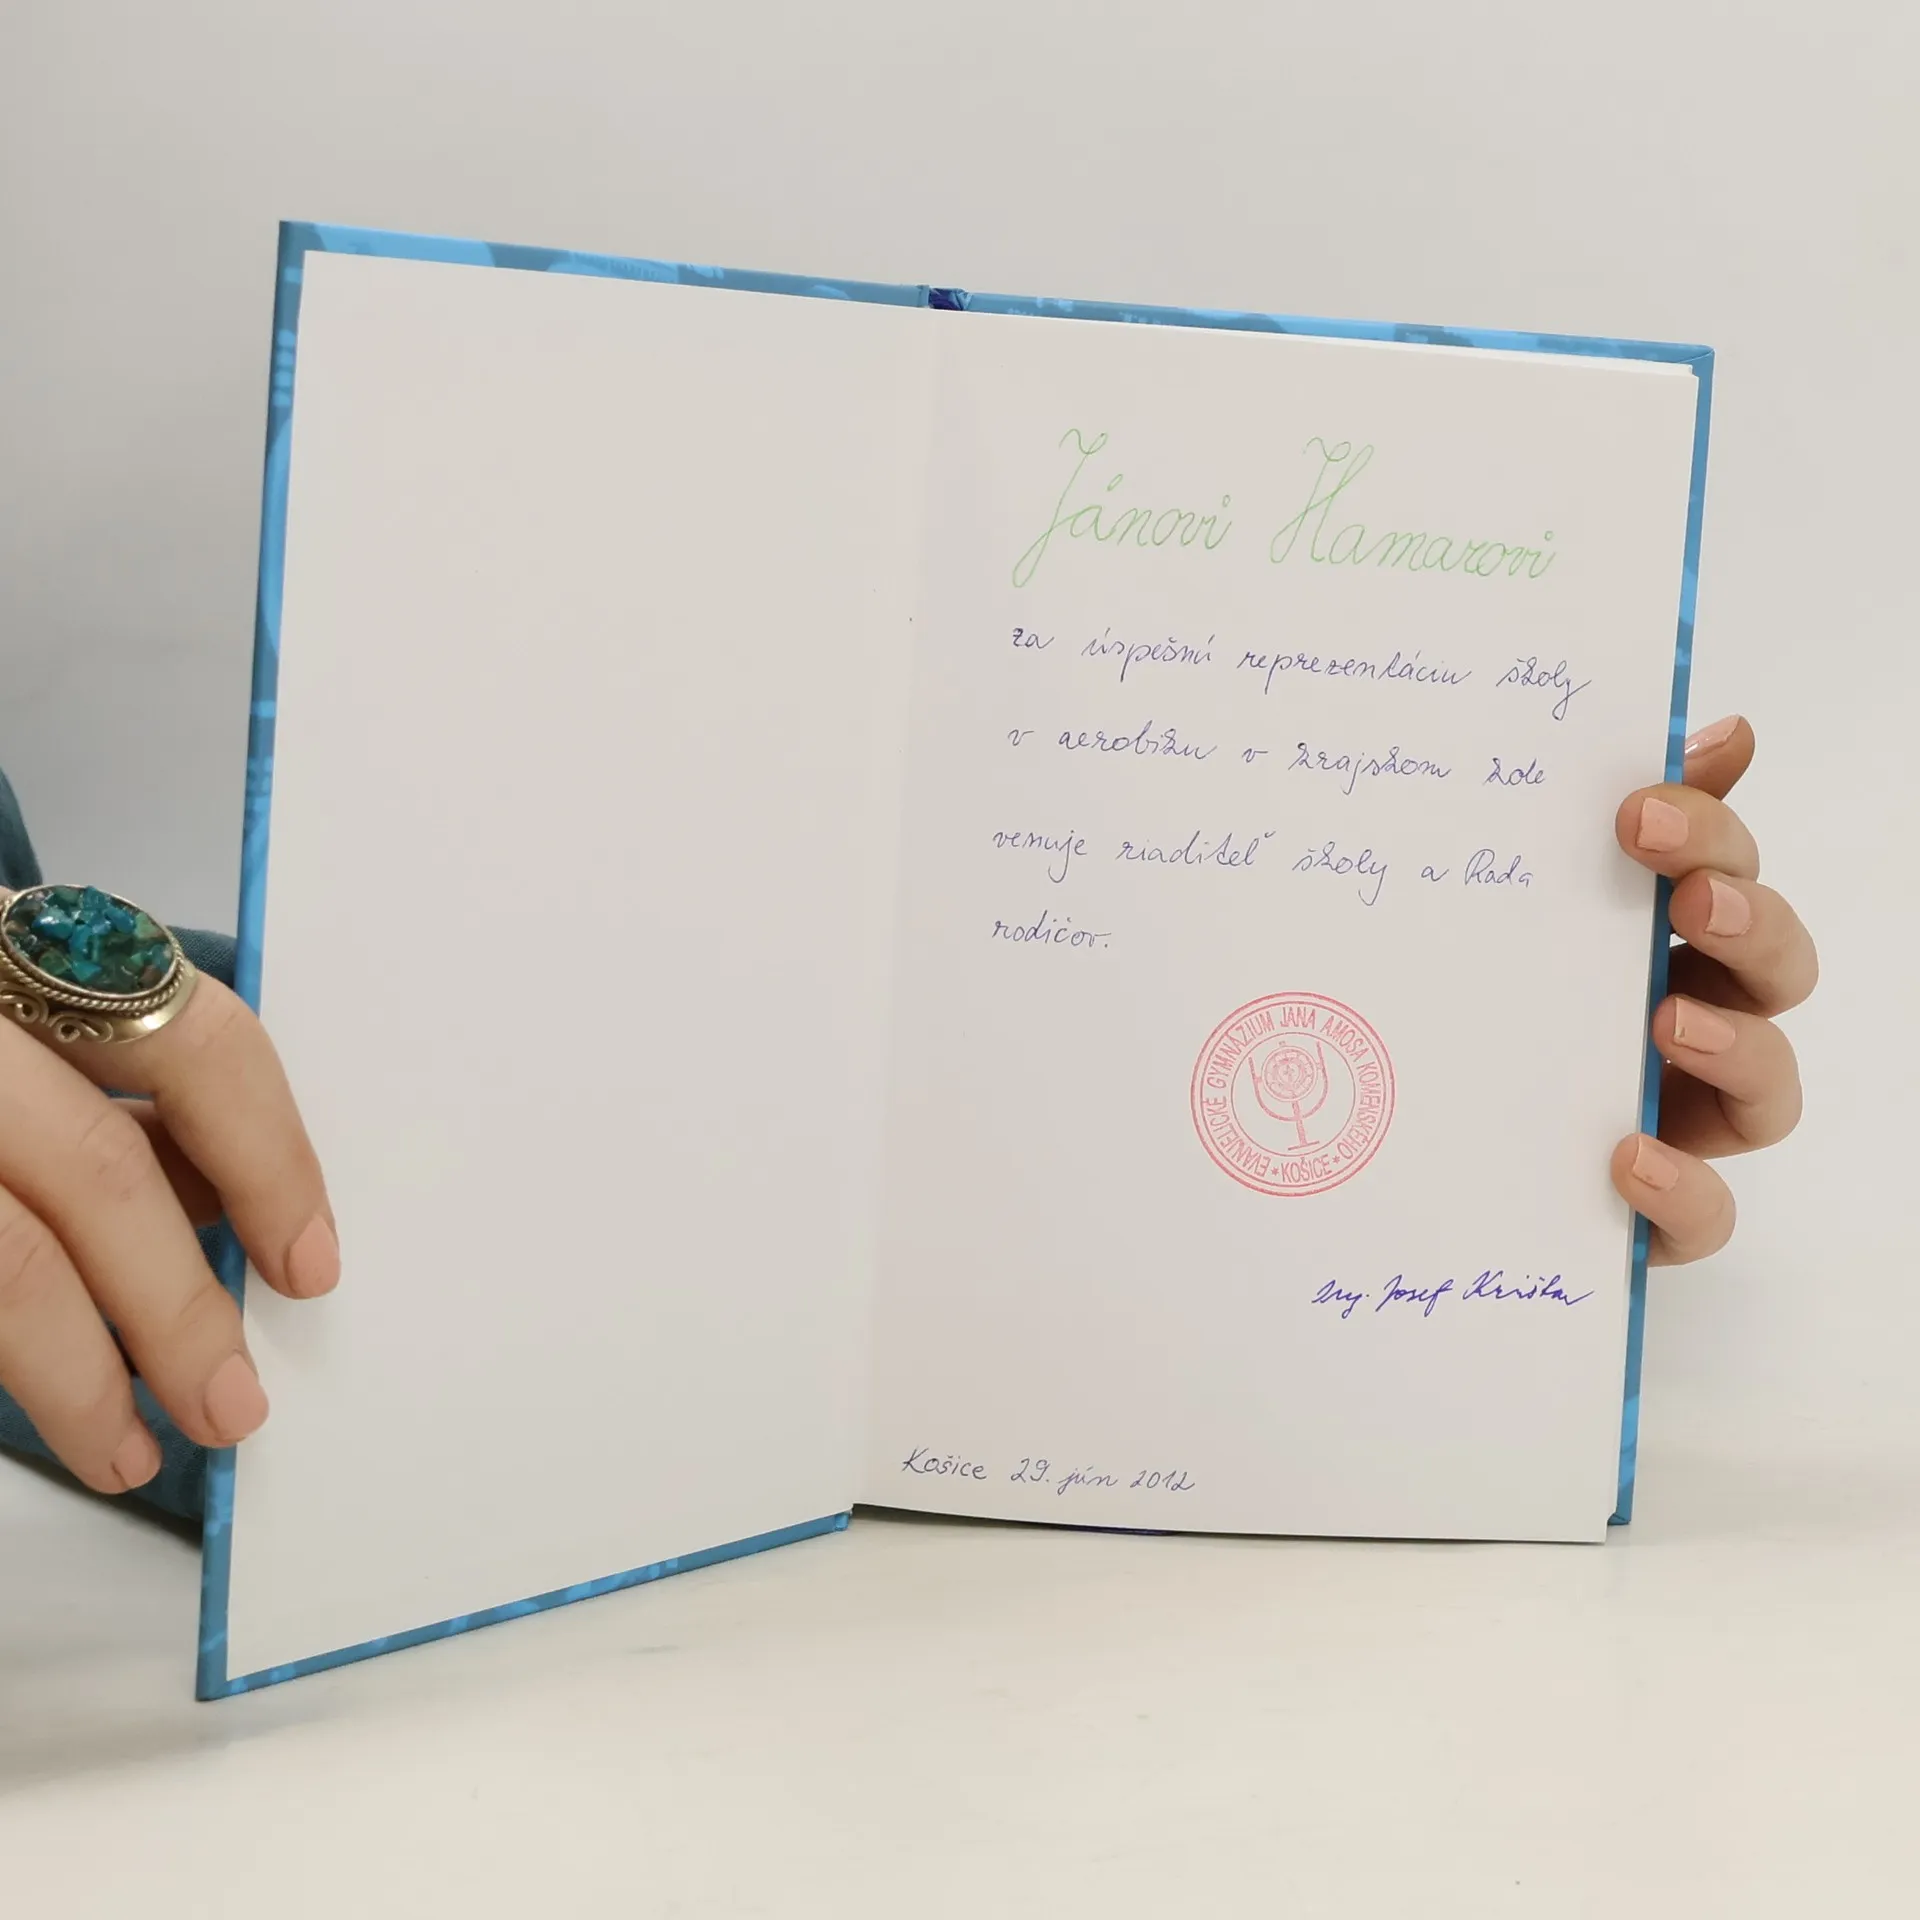 Jánovi Hamarovi
za úspešnú reprezentáciu školy
v aerobiku v krajskom kole
venuje riaditeľ školy a Rada
rodičov.
EVANJELICKÉ GYMNÁZIUM JANA AMOSA KOMENSKÉHO
* KOŠICE *
Ing. Josef Krištan
Košice 29. jún 2012